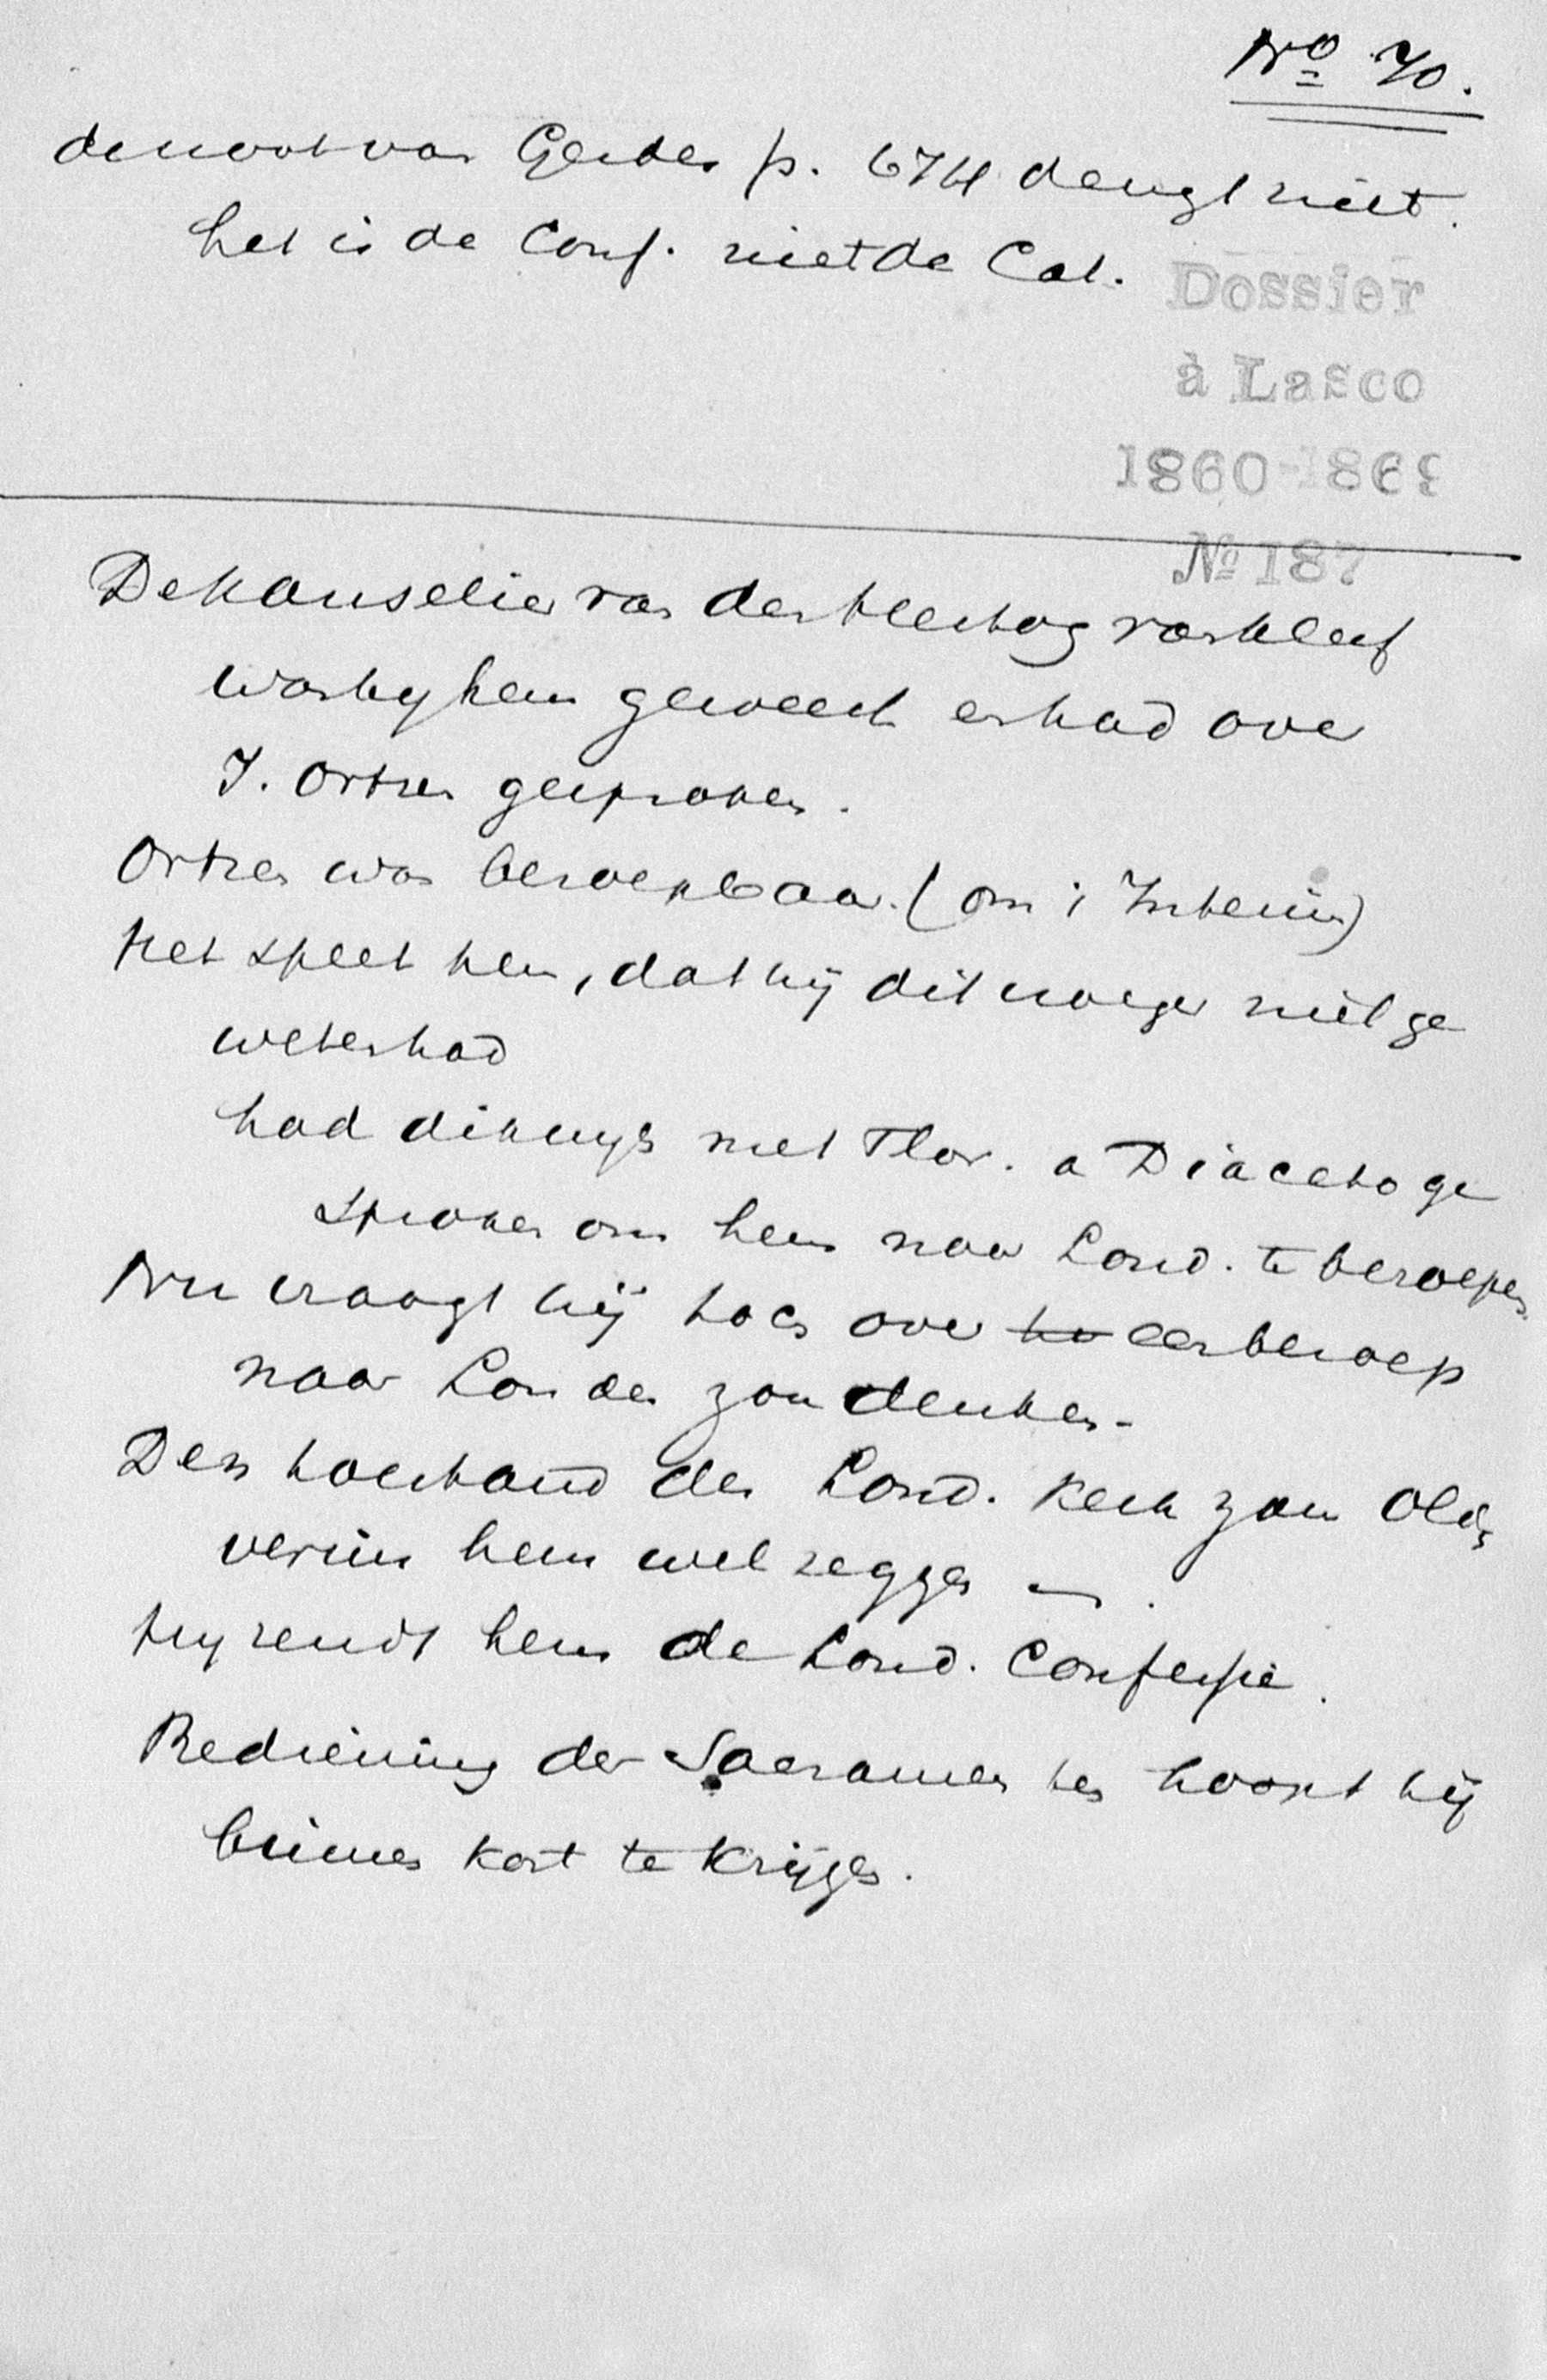 No 70.
de noot van Gerdes p. 674 deugt niet.
het is de Conf. niet de Cat.
Dossier
à Lasco
1860-1869
No 187
De Kanselier van den Hertog van Kleef
was by hem geweest en had over
J. Ortzen gesproken.
Ortzen was beroepbaar. (om 't Interim)
Het speet hem, dat hij dit vroeger niet ge
weten had
had dikwijls met Flor. a Diaceto ge
sproken om hem naar Lond. te beroepen.
Nu vraagt hij hoe over een beroep
naar Londen zou denken.
Den toestand der Lond. Kerk zou
hem wel zeggen
hy zendt hem de Lond. Confessie.
Bediening der Sacramenten hoopt hij
binnen kort te krijgen.